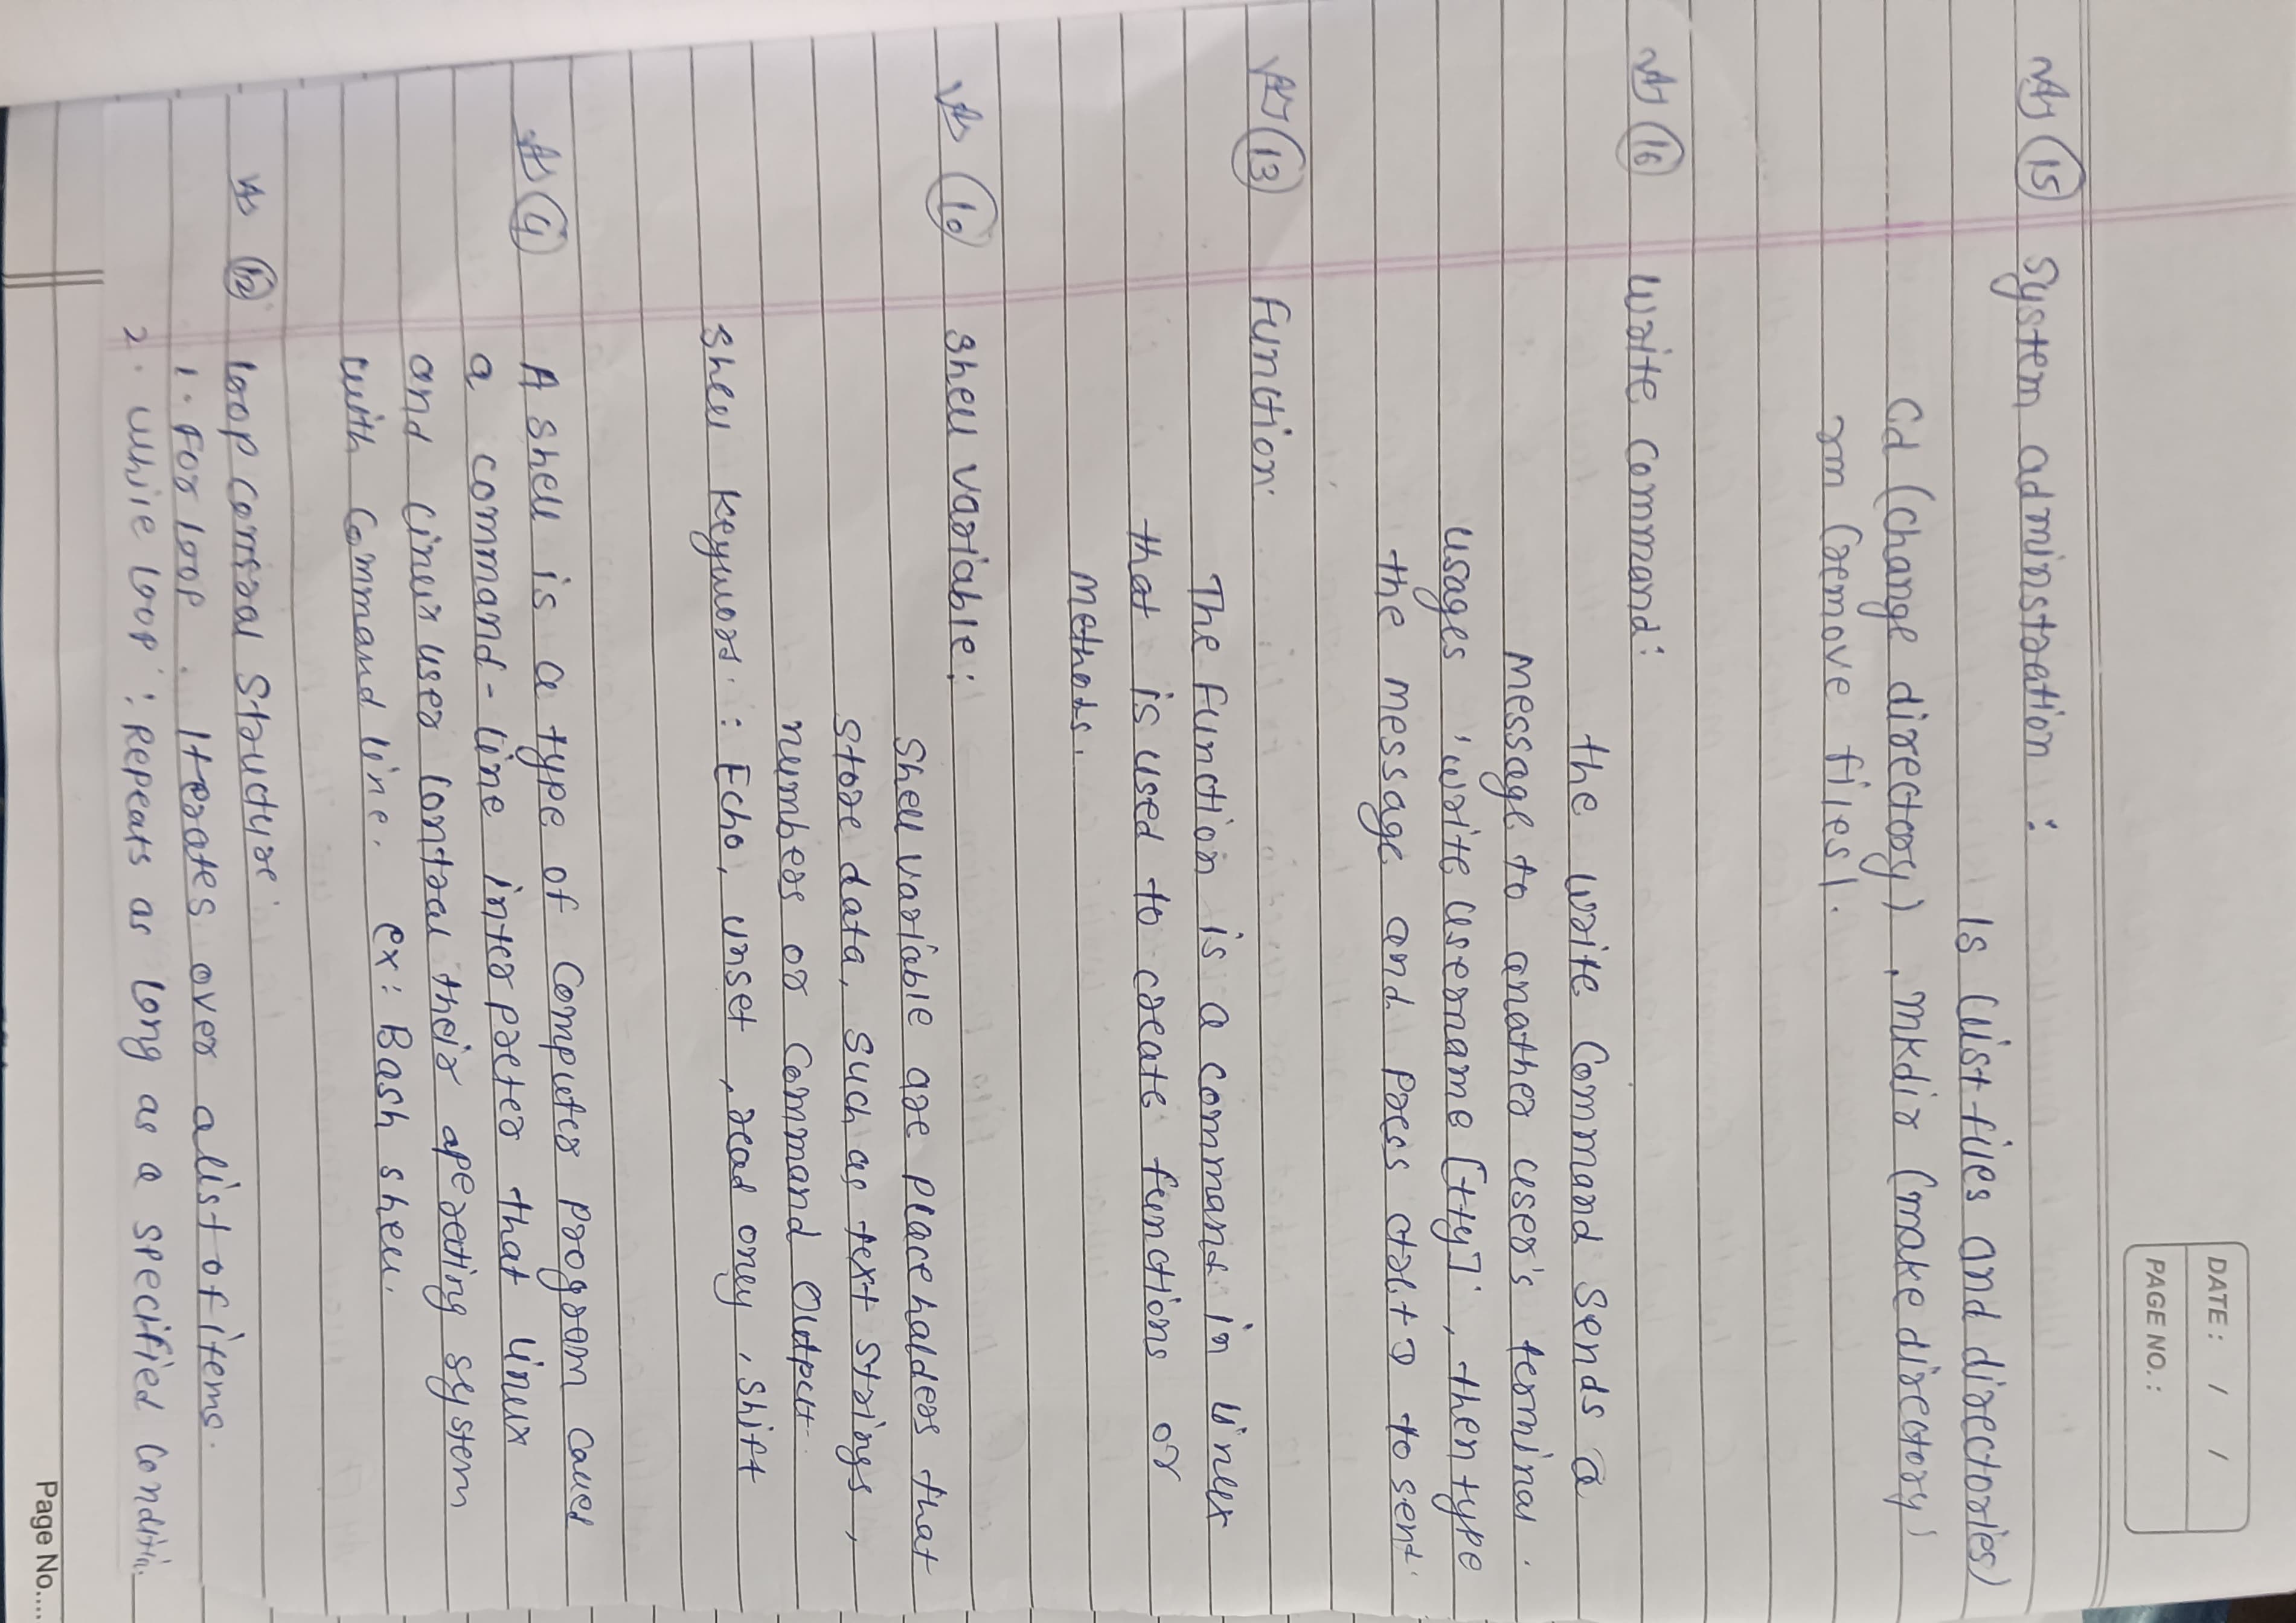 DATE: / /
PAGE NO.:
15 System adminstration :
ls (list files and directories)
cd (change directory), mkdir (make directory)
rm (remove files).
16 write command:
the write command sends a
message to another user's terminal.
usages 'write username [tty]', then type
the message and press ctrl+D to sent.
13 function:
The function is a command in linux
that is used to create functions or
methods.
10 shell variable:
Shell variable are placeholders that
store data, such as text strings,
numbers or command output.
shell keyword: Echo, unset, read only, shift
A shell is a type of computer program called
a command-line interpreter that linux
and linux user control their operating system
with command line. ex: Bash shell.
12 loop control structure
1. For loop. Iterates over a list of items.
2. while loop: Repeats as long as a specified
Page No....